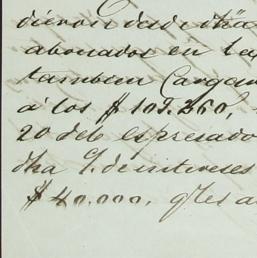 dieron desde dha
abonados en la
tambien Cargam
á los $109.260,
20 del espresado
dha %. de intereses
$40.000, qles a